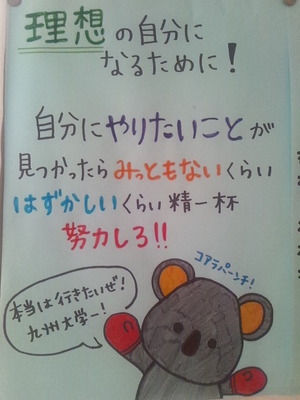 理想の自分に
なるために!
自分にやりたいことが
見つかったらみっともないくらい
はずかしいくらい精一杯
努力しろ!!
コアラパーンチ!
本当は行きたいぜ!
九州大学ー!